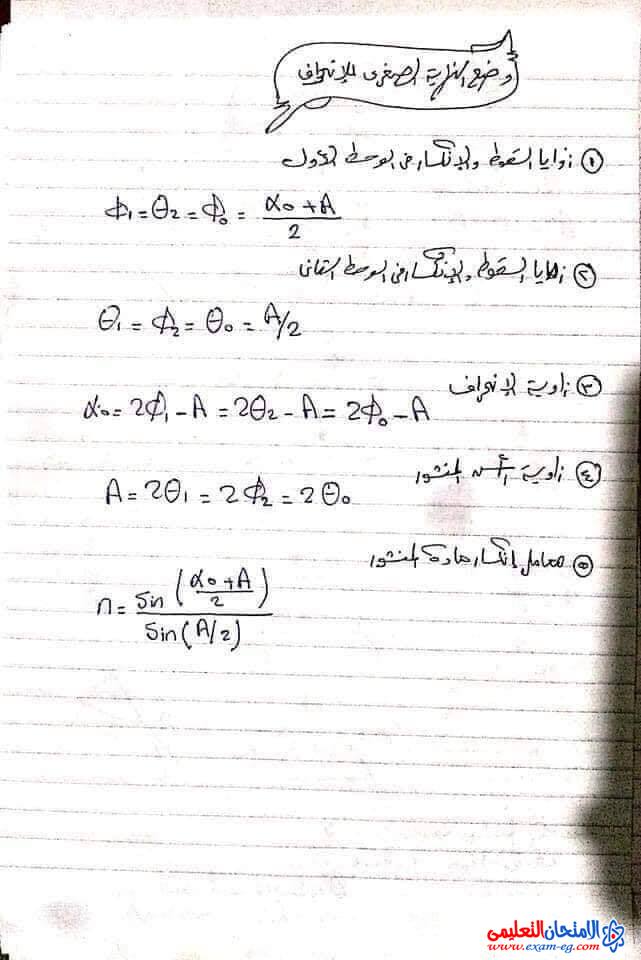 وضع النهاية الصغرى للإنحراف
① زوايا السقوط والإنكسار فى الوسط الأول
ϕ₁ = θ₂ = ϕ₀ = (α₀ + A)/2
② زوايا السقوط والإنكسار فى الوسط الثانى
θ₁ = ϕ₂ = θ₀ = A/2
③ زاوية الإنحراف
α₀ = 2ϕ₁ - A = 2θ₂ - A = 2ϕ₀ - A
④ زاوية رأس المنشور
A = 2θ₁ = 2ϕ₂ = 2θ₀
⑤ معامل إنكسار مادة المنشور
n = sin((α₀ + A)/2) / sin(A/2)
الامتحان التعليمى
www.exam-eg.com